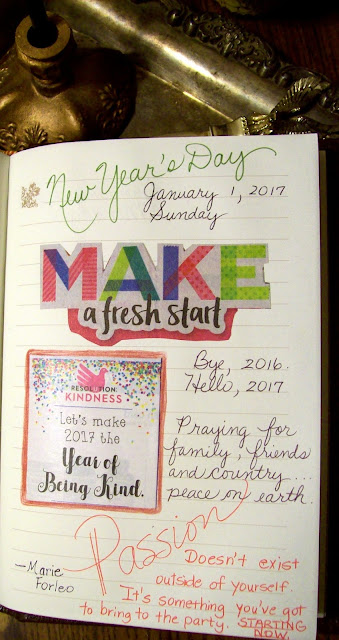 New Year's Day
January 1, 2017
Sunday
MAKE
a fresh start
Bye, 2016.
Hello, 2017
RESOLUTION:
KINDNESS
Let's make
2017 the
Year of
Being Kind.
Praying for
family, friends
and country...
peace on earth.
Passion
Doesn't exist
outside of yourself.
It's something you've got
to bring to the party. STARTING
NOW
—Marie
Forleo